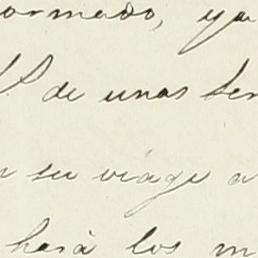 ormado, ya
de unas
su viage a
hará los m